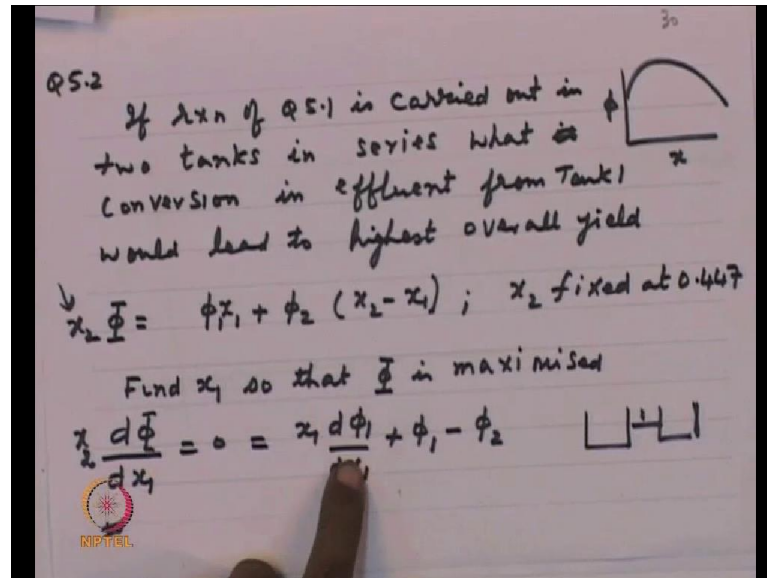 30
Q5.2
If rxn of Q5.1 is carried out in
two tanks in series what is
conversion in effluent from Tank1
would lead to highest overall yield
ϕ
x
x₂ Φ = ϕ₁x₁ + ϕ₂ (x₂ - x₁) ; x₂ fixed at 0.447
Find x₁ so that Φ is maximised
x₂ dΦ/dx₁ = 0 = x₁ dϕ₁/dx₁ + ϕ₁ - ϕ₂
NPTEL